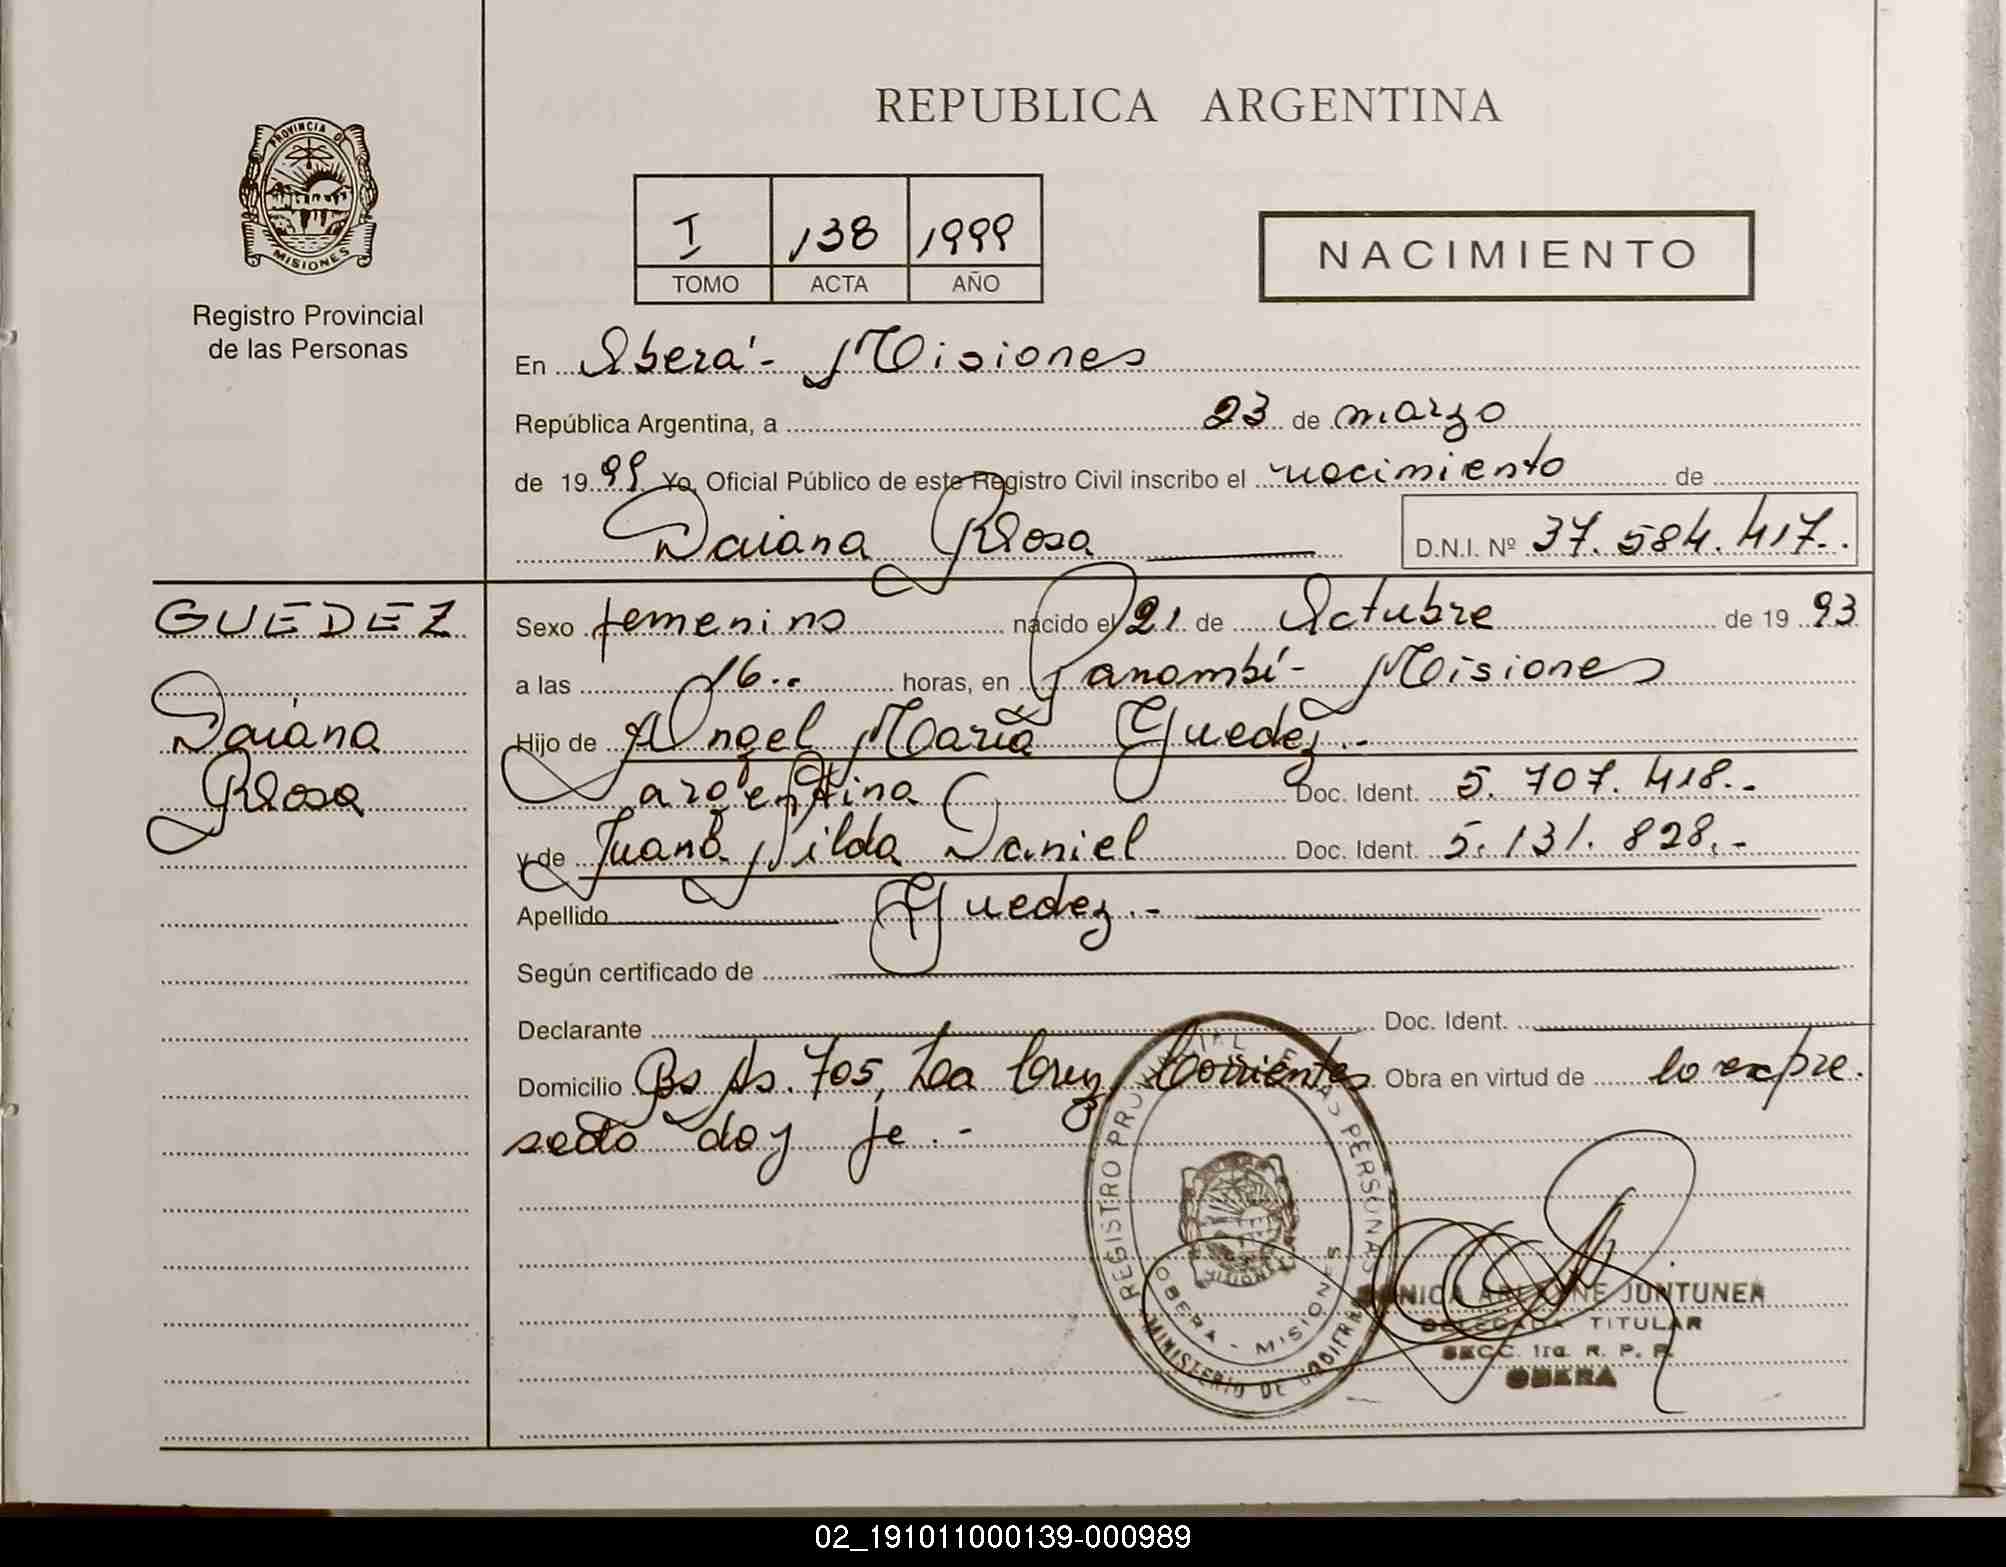 REPUBLICA ARGENTINA
PROVINCIA DE
MISIONES
Registro Provincial
de las Personas
I 138 1999
TOMO ACTA AÑO
NACIMIENTO
En Oberá - Misiones
República Argentina, a 23 de marzo
de 1999 Yo, Oficial Público de este Registro Civil inscribo el nacimiento de
Daiana Rosa
D.N.I. Nº 37.584.417..
GUEDEZ
Daiana
Rosa
Sexo femenino nacido el 21 de Octubre de 1993
a las 16.. horas, en Panambí - Misiones
Hijo de Angel María Guedez.-
argentina Doc. Ident. 5.707.418..
y de Juana Nilda Daniel Doc. Ident. 5.131.828.-
Apellido Guedez.-
Según certificado de
Declarante Doc. Ident.
Domicilio Bs As. 705, La Cruz, Corrientes Obra en virtud de lo expre.
sado doy fe.-
REGISTRO PROVINCIAL DE LAS PERSONAS
MISIONES
OBERA - MISIONES
MINISTERIO DE GOBIERNO
JUNTUNEN
DELEGADA TITULAR
SECC. 1ra. R. P. P.
OBERA
02_191011000139-000989